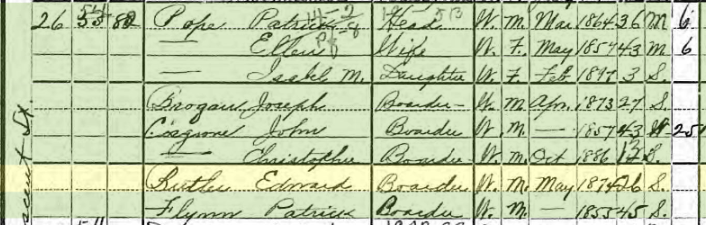 26 55 82 Pope Patrick Head W. M. Mar 1864 36 M 6
— Ellen Wife W. F. May 1857 43 M 6
— Isabel M. Daughter W. F. Feb 1897 3 S.
Brogan Joseph Boarder W. M. Apr 1873 27 S.
Cosgrove John Boarder W. M. — 1857 43 25
— Christopher Boarder W. M. Oct 1886 S.
Butler Edward Boarder W. M. May 1874 26 S.
Flynn Patrick Boarder W. M. — 1855 45 S.
St.